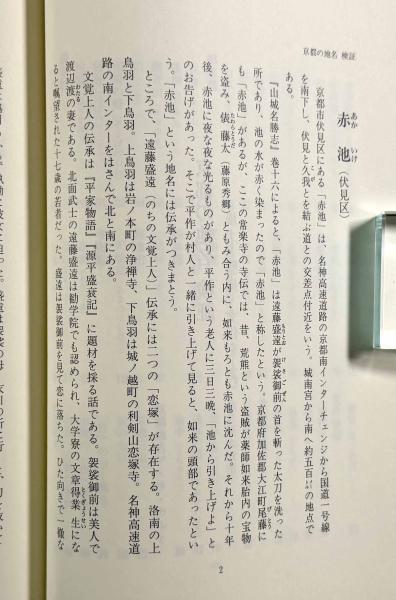 京都の地名 検証
赤池(伏見区)
あか いけ
京都市伏見区にある「赤池」は、名神高速道路の京都南インターチェンジから国道一号線
を南下し、伏見と久我とを結ぶ道との交差点付近をいう。城南宮から南へ約五百㍍の地点で
ある。
『山城名勝志』巻十六によると、「赤池」は遠藤盛遠が袈裟御前の首を斬った太刀を洗った
所であり、池の水が赤く染まったので「赤池」と称したという。京都府加佐郡大江町尾藤に
も「赤池」があるが、ここの常楽寺の寺伝では、昔、荒熊という盗賊が薬師如来胎内の宝物
を盗み、俵藤太(藤原秀郷)ともみ合う内に、如来もろとも赤池に沈んだ。それから十年
後、赤池に夜な夜な光るものがあり、平作という老人に三日三晩、「池から引き上げよ」と
のお告げがあった。そこで平作が村人と一緒に引き上げて見ると、如来の頭部であったとい
う。「赤池」という地名には伝承がつきまとう。
ところで、「遠藤盛遠(のちの文覚上人)」伝承には二つの「恋塚」が存在する。洛南の上
鳥羽と下鳥羽。上鳥羽は岩ノ本町の浄禅寺、下鳥羽は城ノ越町の利剣山恋塚寺。名神高速道
路の南インターをはさんで北と南にある。
文覚上人の伝承は『平家物語』『源平盛衰記』に題材を採る話である。袈裟御前は美人で
渡辺渡の妻である。北面武士の遠藤盛遠は勧学院でも認められ、大学寮の文章得業生にな
ると嘱望された十七歳の若者だった。盛遠は袈裟御前を見て恋に落ちた。ひた向きで一様な
2